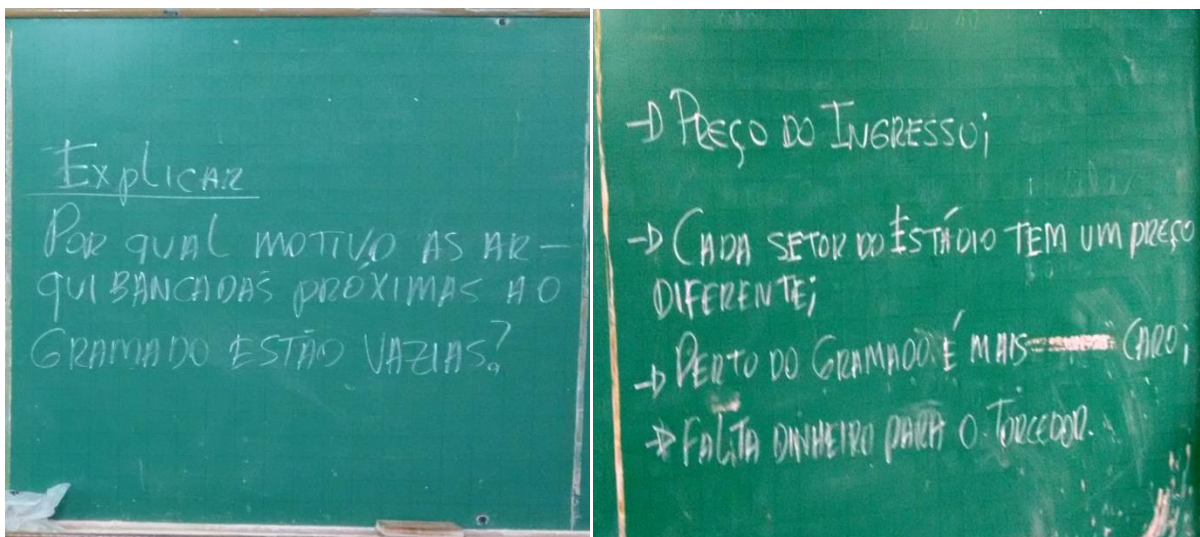 Explicar
Por qual motivo as ar-
quibancadas próximas ao
gramado estão vazias?
→ Preço do Ingresso;
→ Cada setor do Estádio tem um preço
diferente;
→ Perto do Gramado é mais caro;
→ Falta dinheiro para o Torcedor.